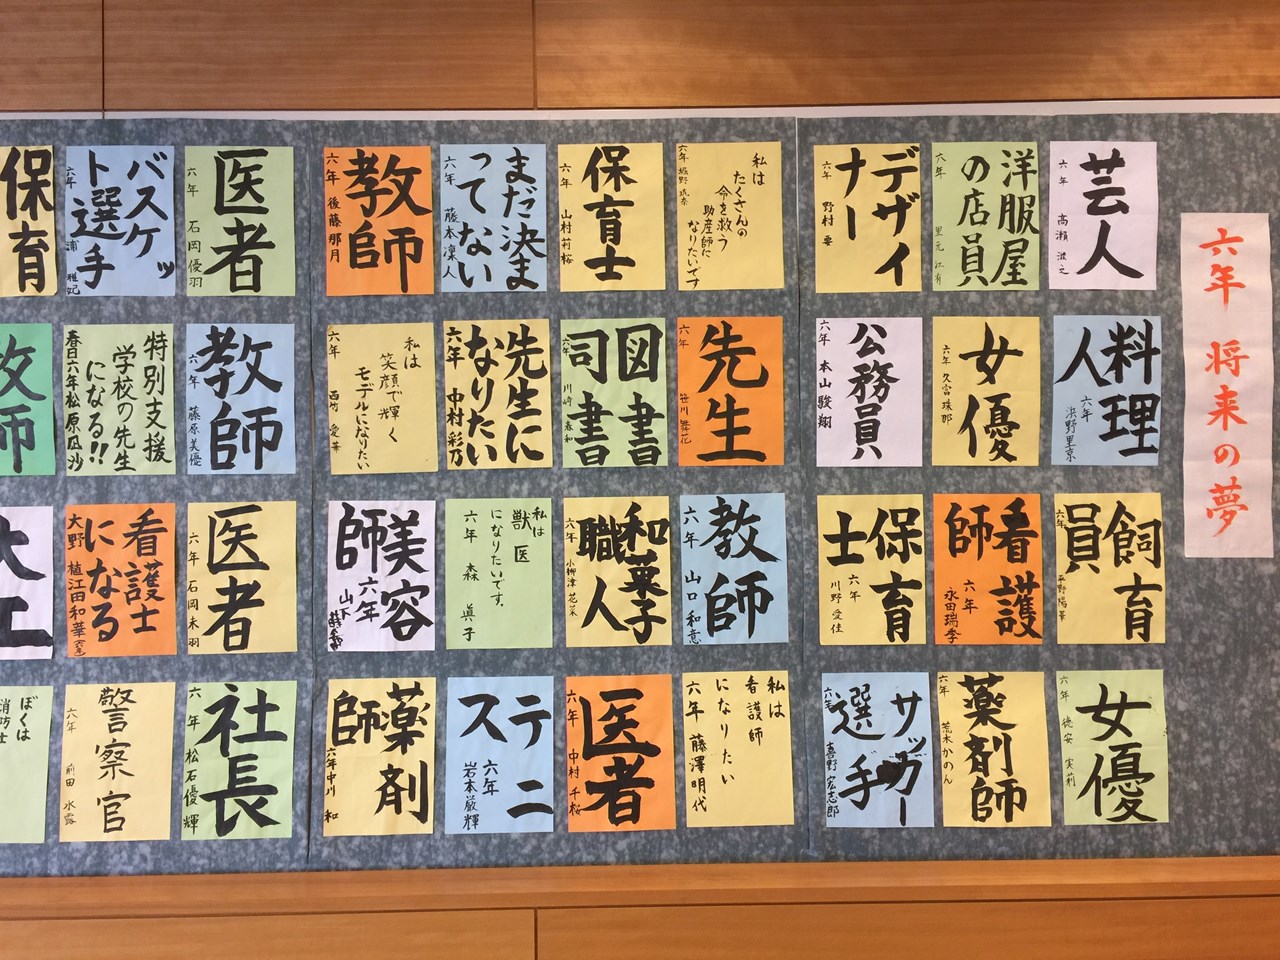 六年 将来の夢
芸人
六年 高瀬
洋服屋
の店員
六年 里元 江有
デザイ
ナー
六年 野村 要
私は
たくさんの
命を救う
助産師に
なりたいです
六年
保育士
六年 山村莉桜
まだ決ま
ってない
六年 藤本凜人
教師
六年 後藤那月
医者
六年 石岡優羽
バスケッ
ト選手
六年
保育
料理
人
六年 浜野里京
女優
六年 久富珠那
公務員
六年 本山駿翔
先生
六年 笹川舞花
図書
司書
六年 川崎春和
先生に
なりたい
六年 中村彩乃
私は
笑顔で輝く
モデルになりたい
六年 西竹愛華
教師
六年 藤原美優
特別支援
学校の先生
になる!!
春日六年松原凪沙
教師
飼育
員
六年 平野陽華
看護
師
六年 永田瑞季
保育
士
六年 川野愛佳
教師
六年 山口和意
和菓子
職人
六年 小柳津花菜
私は
獣医
になりたいです。
六年 森 眞子
美容
師
六年 山下
医者
六年 石岡未羽
看護士
になる
大野 植江田和華
大工
女優
六年 徳安 実莉
薬剤師
六年 荒木かのん
サッカー
選手
六年 喜野宏志郎
私は
看護師
になりたい
六年 藤澤明代
医者
六年 中村千桜
テニ
ス
六年 岩本厳輝
薬剤
師
六年中川 和
社長
六年 松石優輝
警察官
六年 前田 水露
ぼくは
消防士